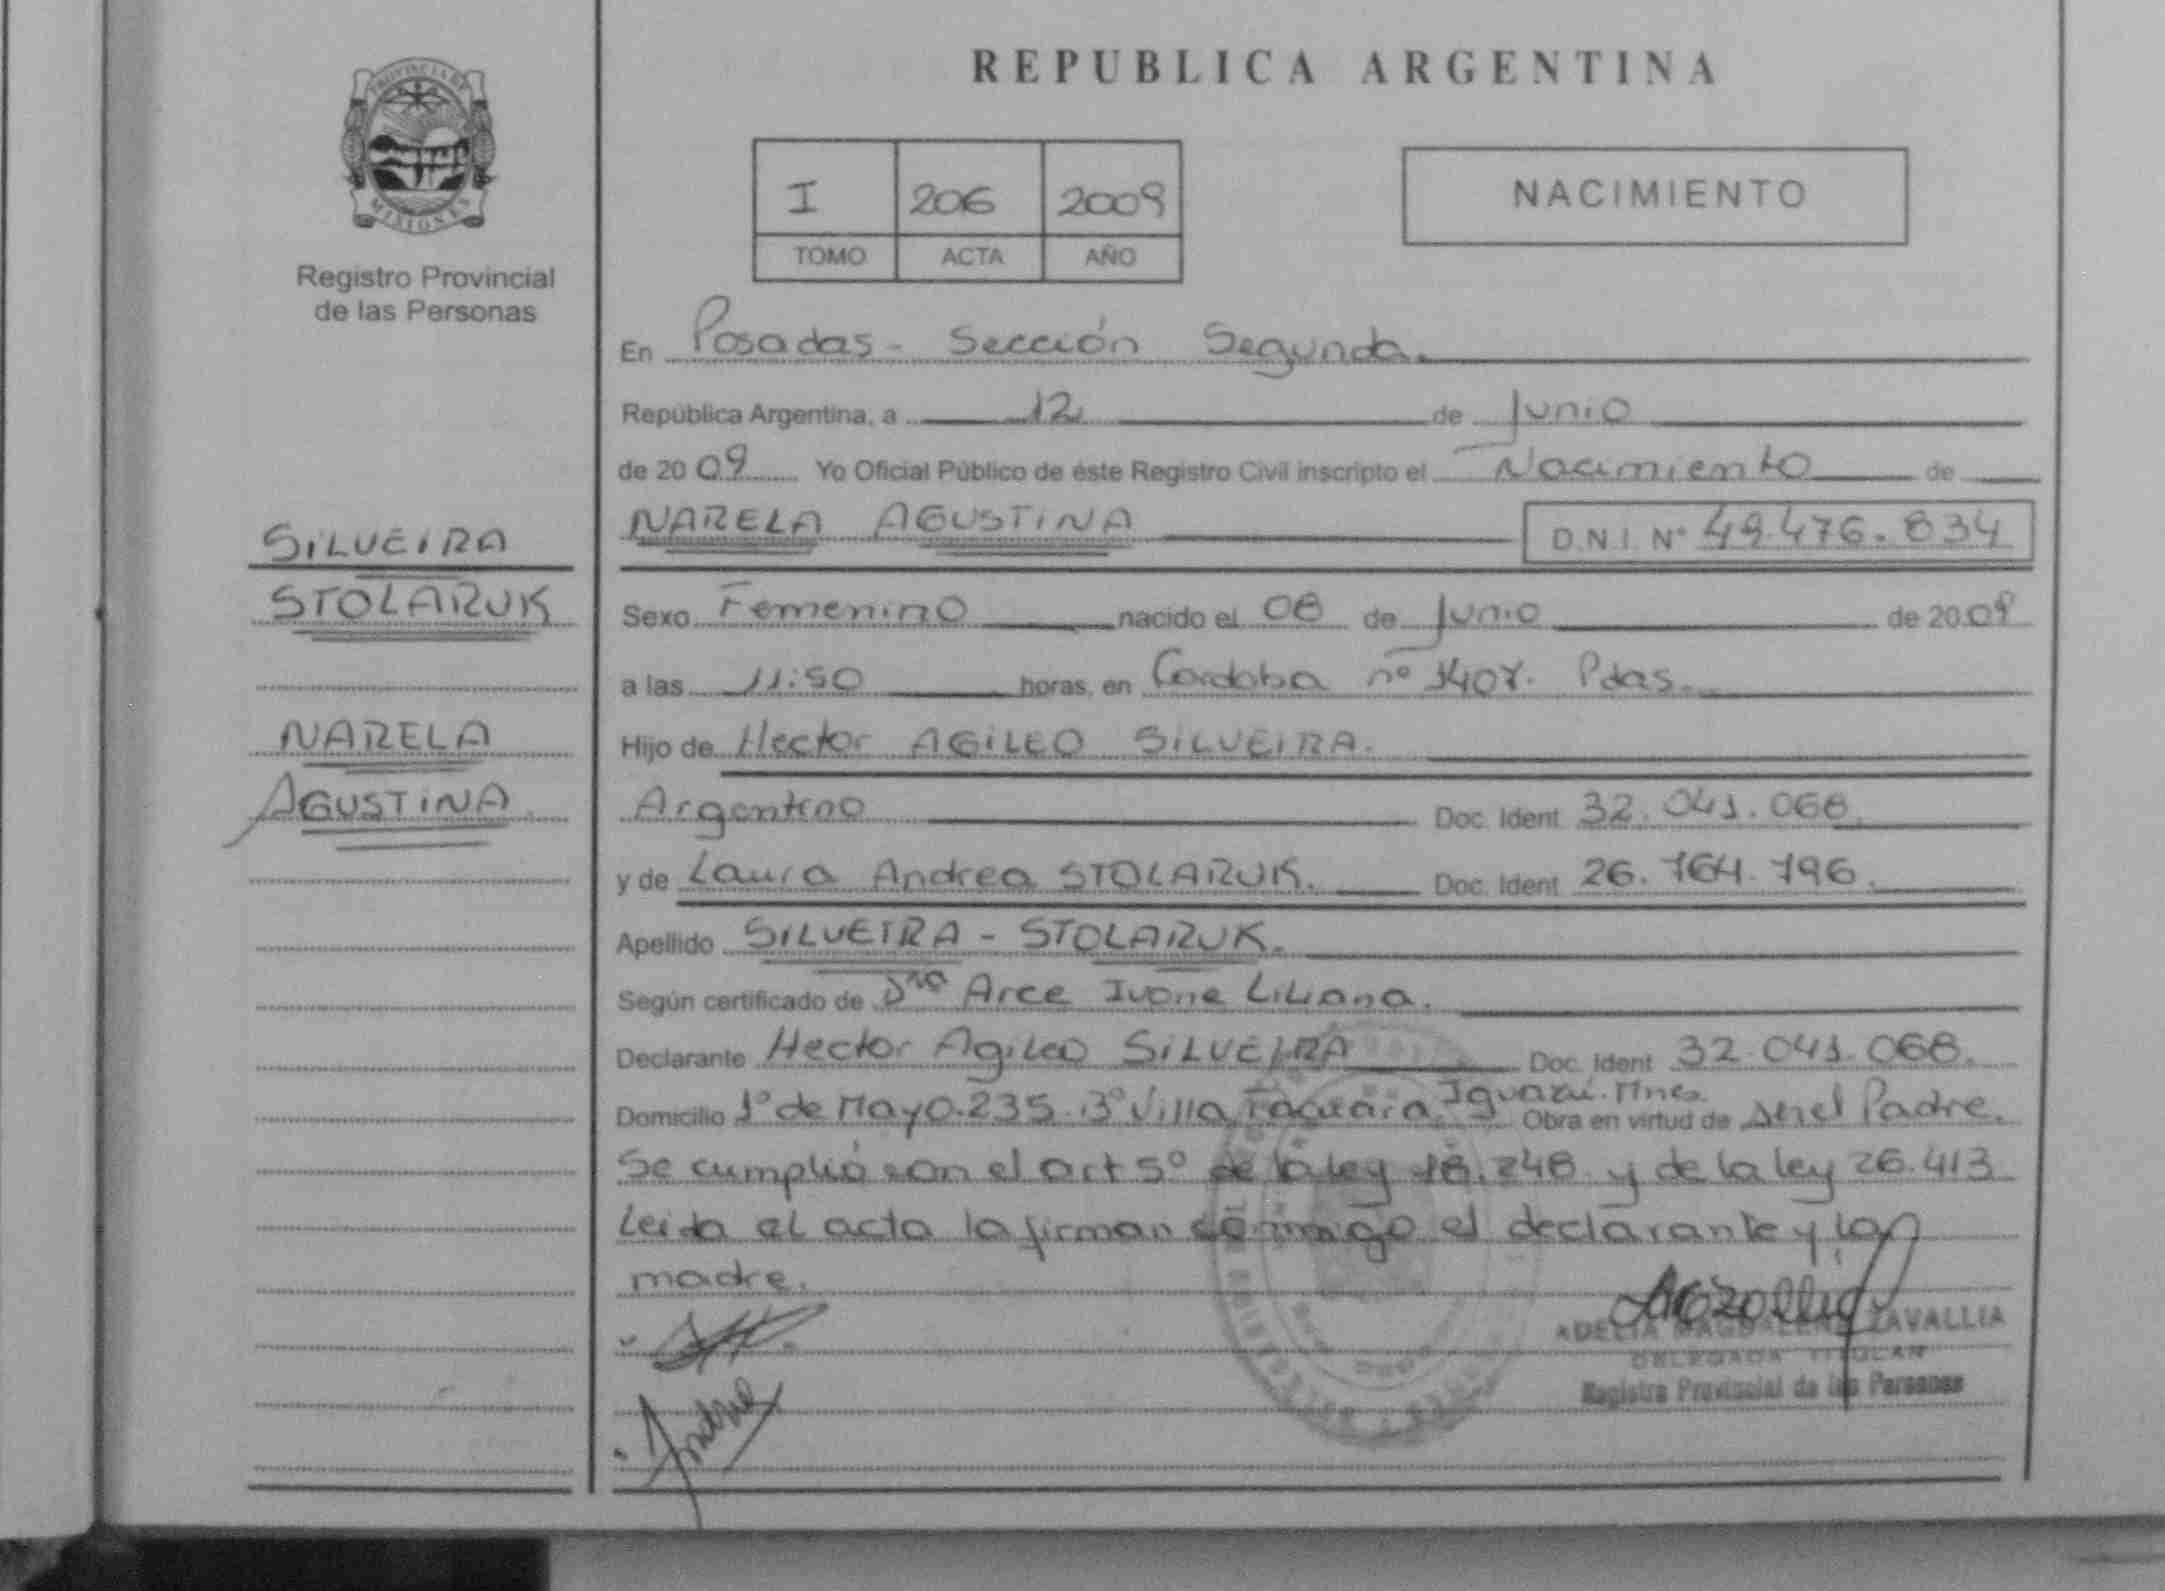 REPUBLICA ARGENTINA
PROVINCIA DE
MISIONES
Registro Provincial
de las Personas
I 206 2009
TOMO ACTA AÑO
NACIMIENTO
En Posadas - Sección Segunda.
República Argentina, a 12 de Junio
de 20 09 Yo Oficial Público de éste Registro Civil inscripto el Nacimiento de
NARELA AGUSTINA D.N.I. Nº 49.476.834
SILVEIRA
STOLARUK
NARELA
AGUSTINA.
Sexo Femenino nacido el 08 de Junio de 20 09
a las 11:50 horas, en Cordoba nº 1407. Pdas.
Hijo de Hector AGILEO SILVEIRA.
Argentino Doc. Ident 32.041.068.
y de Laura Andrea STOLARUK. Doc. Ident 26.764.796.
Apellido SILVEIRA - STOLARUK.
Según certificado de Dra Arce Ivone Liliana.
Declarante Hector Agileo SILVEIRA Doc. Ident 32.041.068.
Domicilio 1º de Mayo.235.Bº Villa Tacuara. Iguazú. Mnes. Obra en virtud de ser el Padre.
Se cumplió con el art 5º de la ley 18.248 y de la ley 26.413
Leida el acta la firman conmigo el declarante y la
madre.
ADELIA MAGDALENA ZAVALLIA
DELEGADA TITULAR
Registro Provincial de las Personas